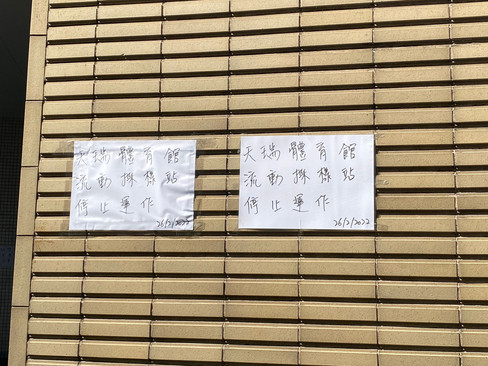 天瑞體育館
流動採樣站
停止運作
26/2/2022
天瑞體育館
流動採樣站
停止運作
26/2/2022